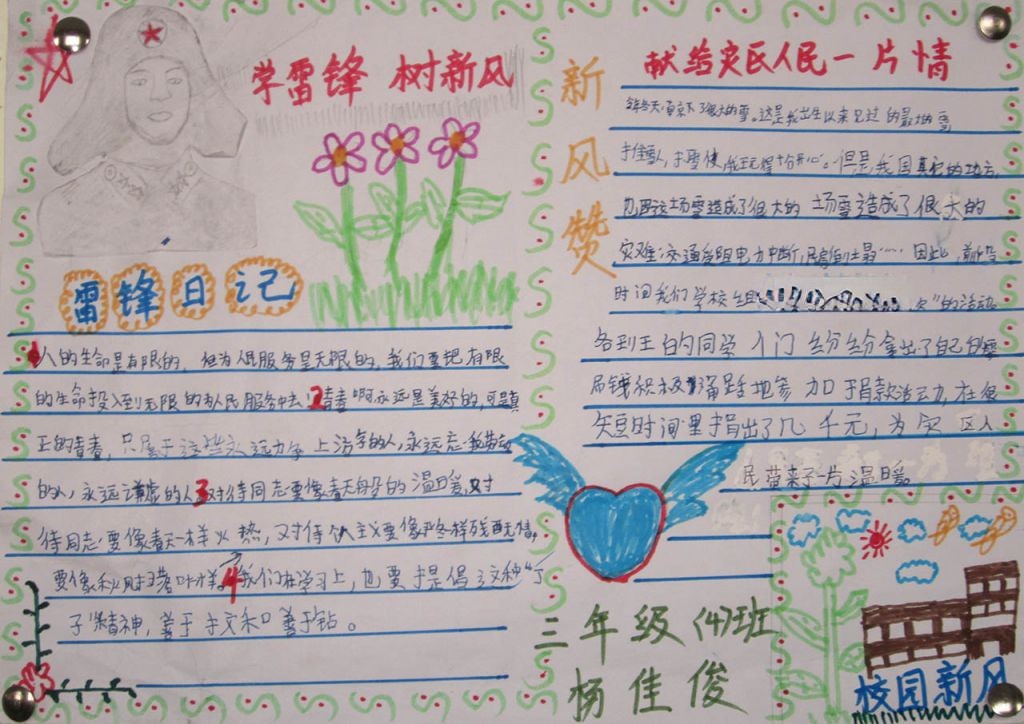 学雷锋 树新风
雷锋日记
1人的生命是有限的，但为人民服务是无限的，我们要把有限
的生命投入到无限的为人民服务中去！2青春啊永远是美好的，可是真
正的青春，只属于这些永远力争上游的人，永远忘我劳动
的人，永远谦虚的人3对待同志要像春天般的温暖，对
待同志要像春天一样火热，对待个人主义要像严冬一样残酷无情，
要像秋风扫落叶一样。4我们在学习上，也要提倡这种“丁
子”精神，善于挤和善于钻。
新风赞
献给灾区人民一片情
今年冬天，南京下了很大的雪。这是我出生以来见过的最大的雪
堆雪人，打雪仗，我玩得十分开心。但是我国其它的地方，
也因这场雪造成了很大的 场雪造成了很大的
灾难：交通受阻电力中断，民房倒塌……因此，前一段
时间我们学校组 灾”的活动
各班的同学 们纷纷拿出了自己的零
用钱积极踊跃地参加捐款活动，在很
短时间里捐出了几千元，为灾区人
民带来了一片温暖。
三年级(4)班
杨佳俊
校园新风